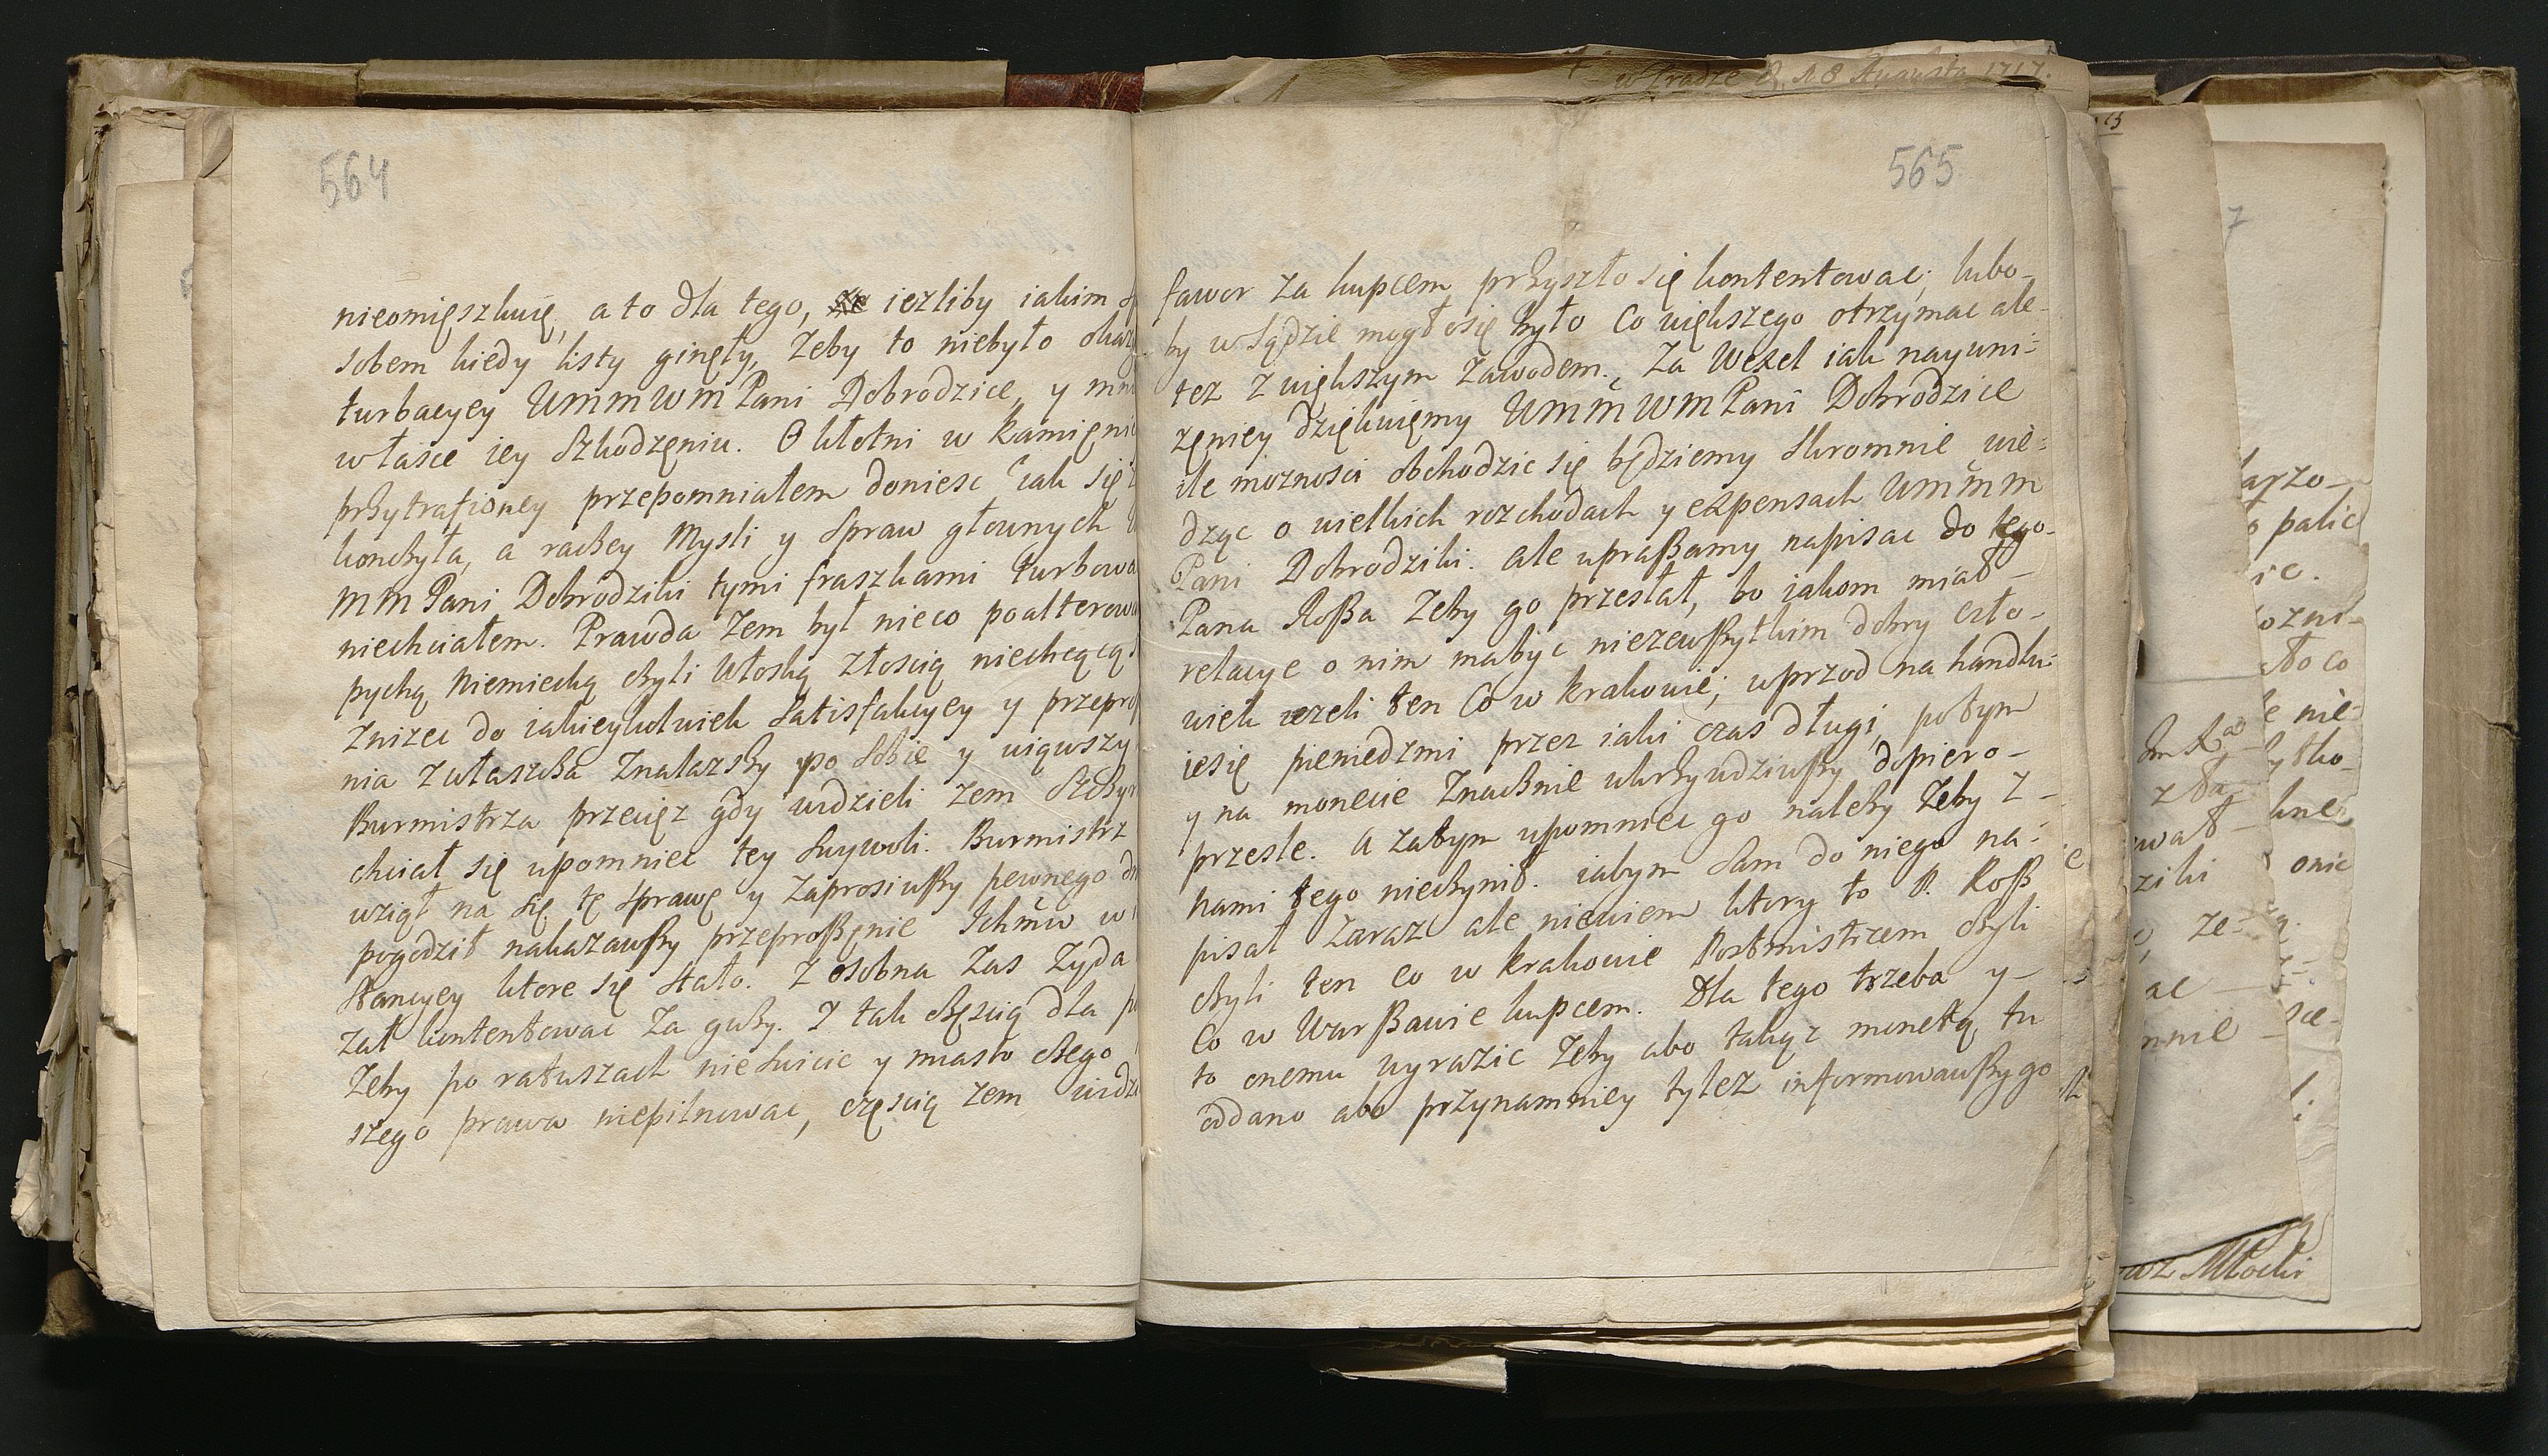 564
nieomięszkuię, a to dla tego, że ieżliby iakim
sobem kiedy listy ginęły, Zeby to niebyło
turbacyey UMMWM Pani Dobrodzice, y
właśce iey Szkodzęniu. O kłotni w
przytrafioney przepomniałem doniesc iak się
konczyła, a raczey Mysli y Spraw głownych
MM Pani Dobrodziki tymi fraszkami turbowa
niechciałem. Prawda Zem był nieco poalterow
pychą Niemiecką czyli Włoską złoscią niechcącą
Znizec do iakieykolwiek Satisfakcyey y przepro
nia zwłaszcza Znalazszy po Sobie y
Burmistrza przecięz gdy widzieli zem
chciał się upomniec tey Swywoli. Burmistrz
wziął na Się tę Sprawę y Zaprosiwszy pewnego
pogodził nakazawszy przeproszęnie Ichmw w
Stancyey ktore się Stało. Z osobna Zas Zyda
zał kontentowac Za guzy. I tak częscią dla
Zeby po ratuszach nie y miasto czego
szego prawa niepilnowac, częscią zem widz
w Gradze D. 18 Augusta 1717.
565
fawor za kupcem przyszło się kontentowac, lubo-
by w Sądzie mogłosię było Co większego otrzymac ale-
tez z większym Zawodem. Za Wexel iak nayuni-
zęniey dziękuięmy UMMWM Pani Dobrodzice
ile moznosci obchodzic się będziemy Skromnie wie-
dząc o wielkich rozchodach y expensach UMMM
Pani Dobrodziki. ale upraszamy napisac do tego-
Pana Rosza Zeby go przesłał, bo iakom miał-
relacye o nim mabyc niezewszytkim dobry czło-
wiek iezeli ten Co w krakowie; wprzod na handlu-
iesię pieniedzmi przez iaki czas długi, potym
y na monecie Znacznie ukrzywdziwszy dopiero-
przesle. A zatym upomniec go nalezy Zeby Z-
nami tego nieczynił. iabym Sam do niego na-
pisał Zaraz ale niewiem ktory to P. Rosz
czyli ten co w krakowie Postmistrzem czyli
Co w Warszawie kupcem. Dla tego trzeba y-
to onemu wyrazic Zeby abo takąz monetą tu
oddano abo przynamniey tylez informowawszy go